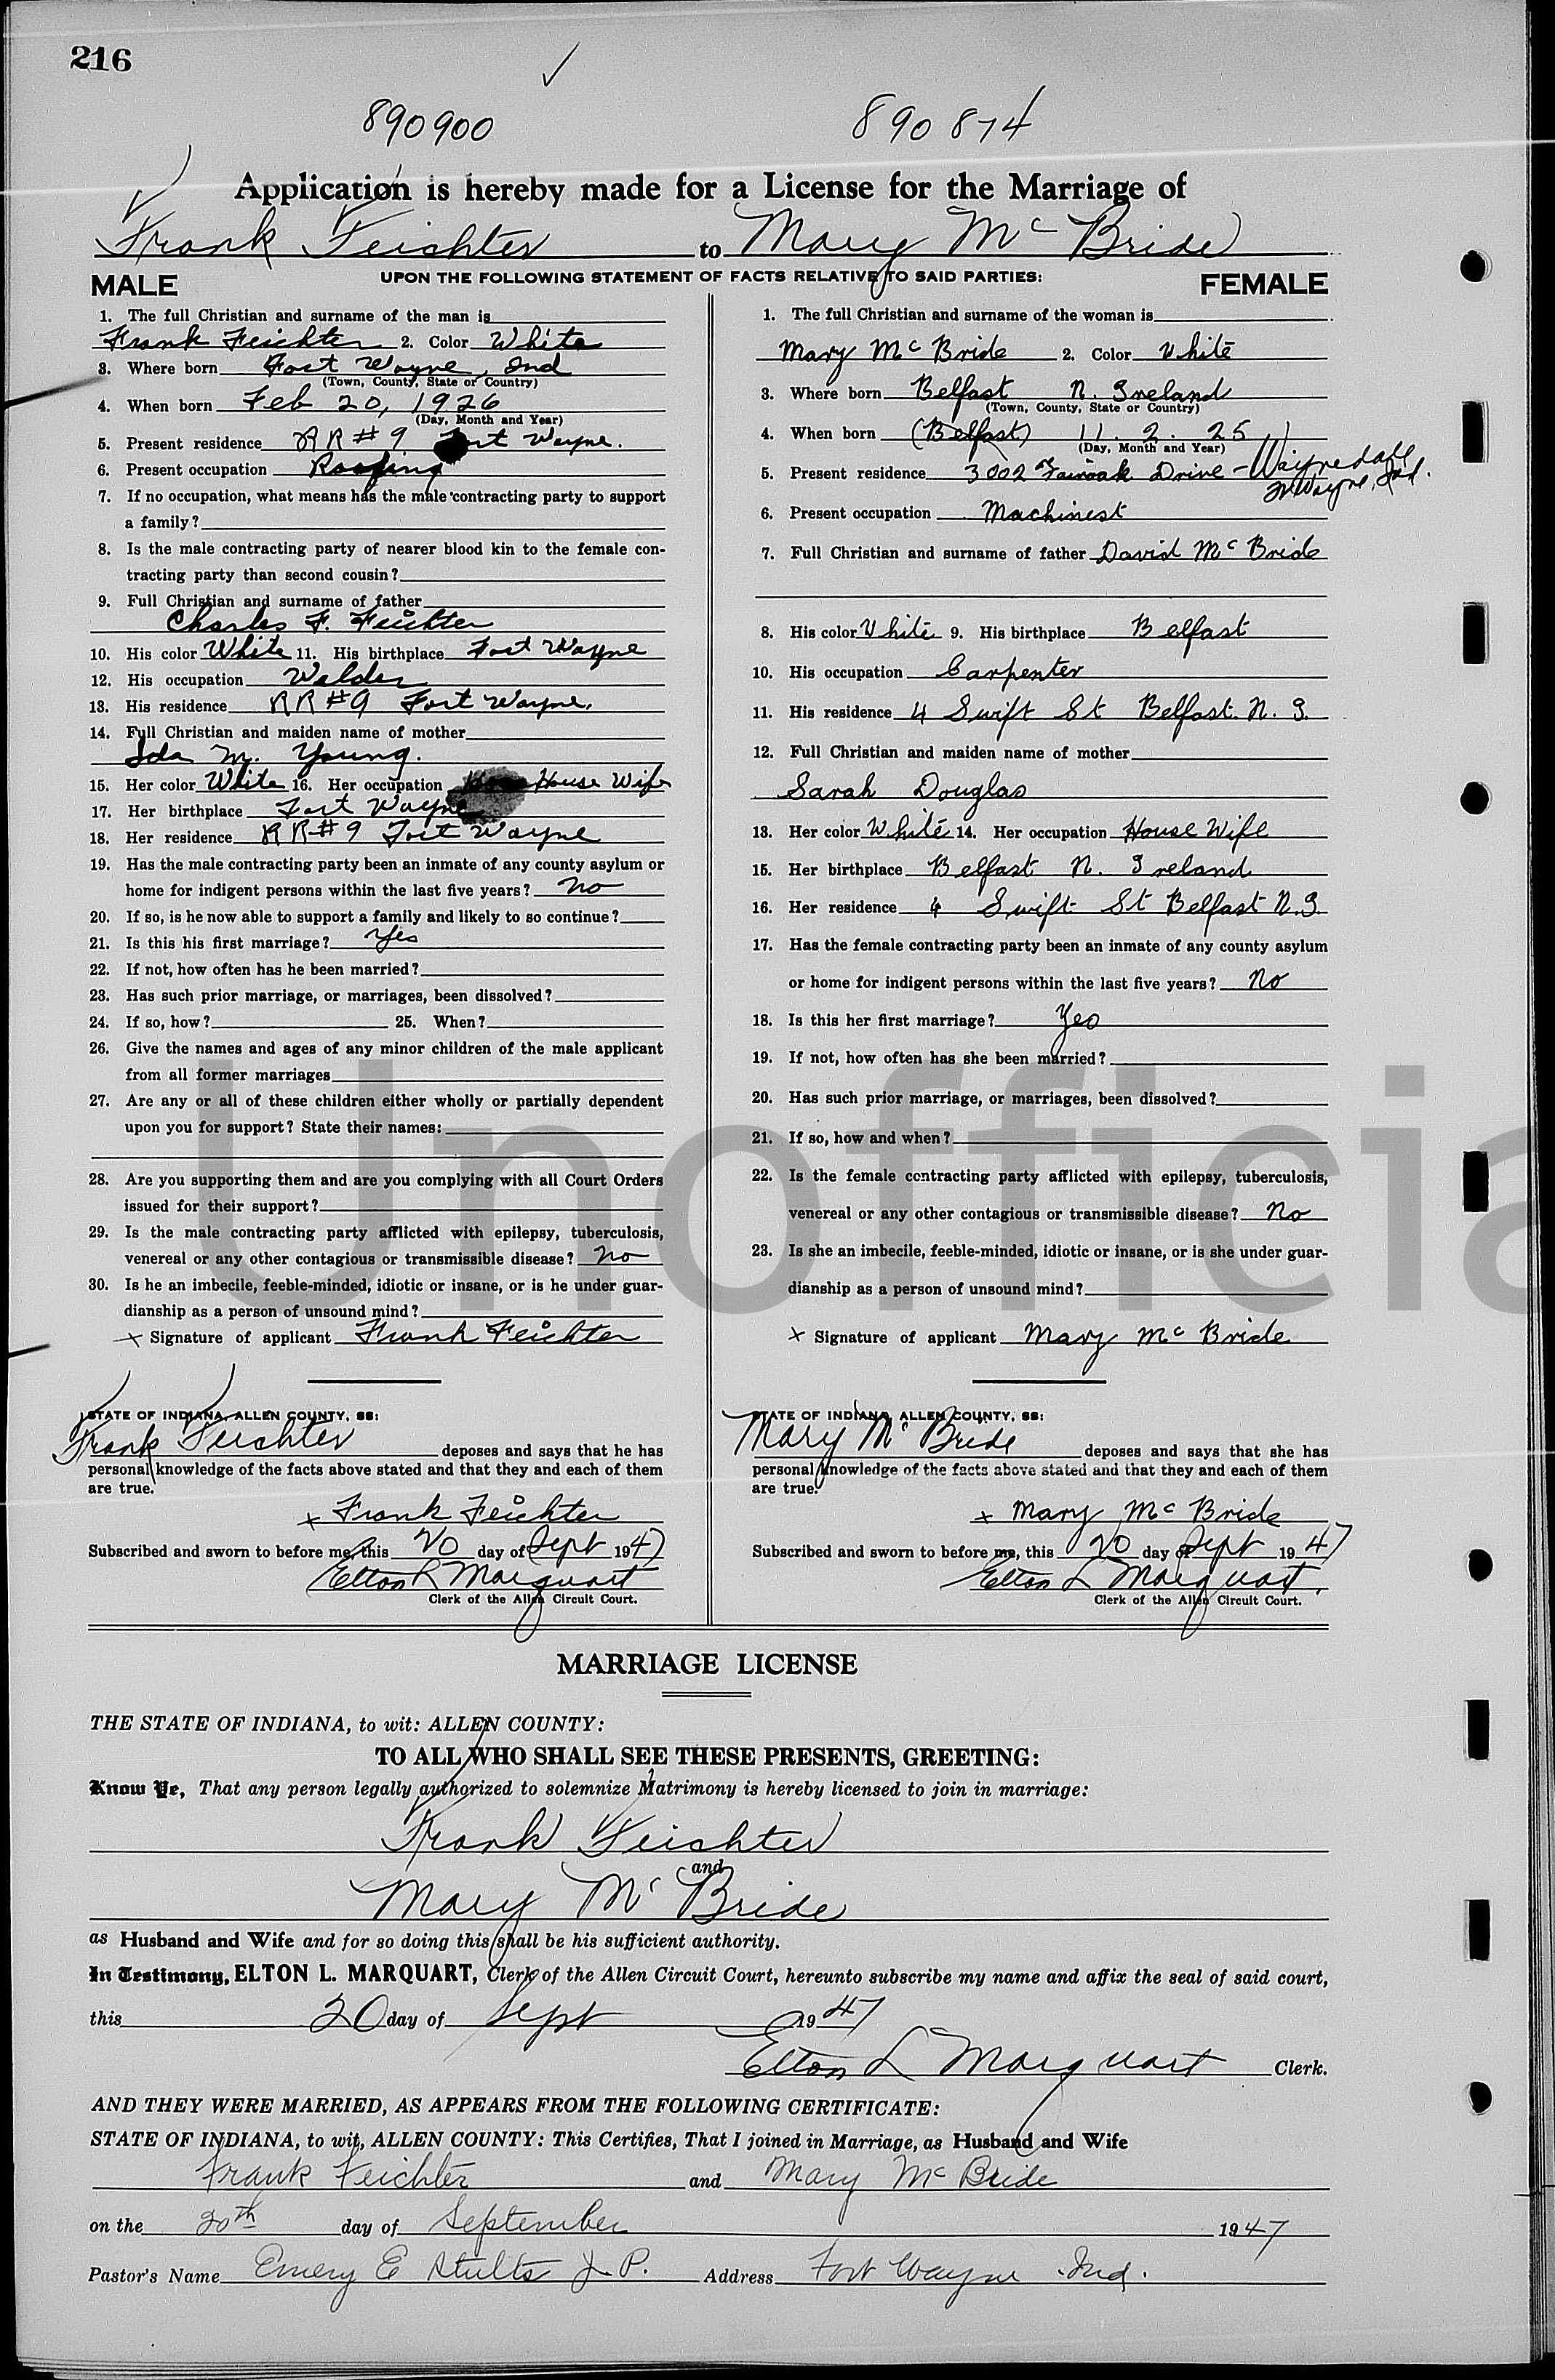 216
✓
890900 890874
Application is hereby made for a License for the Marriage of
Frank Feichter to Mary Mc Bride
UPON THE FOLLOWING STATEMENT OF FACTS RELATIVE TO SAID PARTIES:
MALE
1. The full Christian and surname of the man is
Frank Feichter 2. Color White
3. Where born Fort Wayne, Ind
(Town, County, State or Country)
4. When born Feb 20, 1926
(Day, Month and Year)
5. Present residence RR#9 Fort Wayne.
6. Present occupation Roofing
7. If no occupation, what means has the male contracting party to support
a family?
8. Is the male contracting party of nearer blood kin to the female con-
tracting party than second cousin?
9. Full Christian and surname of father
Charles F. Feichter
10. His color White 11. His birthplace Fort Wayne
12. His occupation Welder
13. His residence RR#9 Fort Wayne.
14. Full Christian and maiden name of mother
Ida M. Young.
15. Her color White 16. Her occupation House Wife
17. Her birthplace Fort Wayne
18. Her residence RR#9 Fort Wayne
19. Has the male contracting party been an inmate of any county asylum or
home for indigent persons within the last five years? no
20. If so, is he now able to support a family and likely to so continue?
21. Is this his first marriage? Yes
22. If not, how often has he been married?
23. Has such prior marriage, or marriages, been dissolved?
24. If so, how? 25. When?
26. Give the names and ages of any minor children of the male applicant
from all former marriages
27. Are any or all of these children either wholly or partially dependent
upon you for support? State their names:
28. Are you supporting them and are you complying with all Court Orders
issued for their support?
29. Is the male contracting party afflicted with epilepsy, tuberculosis,
venereal or any other contagious or transmissible disease? no
30. Is he an imbecile, feeble-minded, idiotic or insane, or is he under guar-
dianship as a person of unsound mind?
x Signature of applicant Frank Feichter
STATE OF INDIANA, ALLEN COUNTY, SS:
Frank Feichter deposes and says that he has
personal knowledge of the facts above stated and that they and each of them
are true.
x Frank Feichter
Subscribed and sworn to before me, this 20 day of Sept 1947
Elton L Marquart
Clerk of the Allen Circuit Court.
FEMALE
1. The full Christian and surname of the woman is
Mary Mc Bride 2. Color White
3. Where born Belfast N. Ireland
(Town, County, State or Country)
4. When born (Belfast) 11. 2. 25
(Day, Month and Year)
5. Present residence 3002 Fairoak Drive - Waynedale
Ft Wayne, Ind.
6. Present occupation Machinest
7. Full Christian and surname of father David Mc Bride
8. His color White 9. His birthplace Belfast
10. His occupation Carpenter
11. His residence 4 Swift St Belfast. N. I.
12. Full Christian and maiden name of mother
Sarah Douglas
13. Her color White 14. Her occupation House Wife
15. Her birthplace Belfast N. Ireland
16. Her residence 4 Swift St Belfast N.I
17. Has the female contracting party been an inmate of any county asylum
or home for indigent persons within the last five years? No
18. Is this her first marriage? Yes
19. If not, how often has she been married?
20. Has such prior marriage, or marriages, been dissolved?
21. If so, how and when?
22. Is the female contracting party afflicted with epilepsy, tuberculosis,
venereal or any other contagious or transmissible disease? No
23. Is she an imbecile, feeble-minded, idiotic or insane, or is she under guar-
dianship as a person of unsound mind?
x Signature of applicant Mary Mc Bride
STATE OF INDIANA, ALLEN COUNTY, SS:
Mary Mc Bride deposes and says that she has
personal knowledge of the facts above stated and that they and each of them
are true.
x Mary Mc Bride
Subscribed and sworn to before me, this 20 day of Sept 1947
Elton L Marquart.
Clerk of the Allen Circuit Court.
Unofficia
MARRIAGE LICENSE
THE STATE OF INDIANA, to wit: ALLEN COUNTY:
TO ALL WHO SHALL SEE THESE PRESENTS, GREETING:
Know Ye, That any person legally authorized to solemnize Matrimony is hereby licensed to join in marriage:
Frank Feichter
and
Mary Mc Bride
as Husband and Wife and for so doing this shall be his sufficient authority.
In Testimony, ELTON L. MARQUART, Clerk of the Allen Circuit Court, hereunto subscribe my name and affix the seal of said court,
this 20 day of Sept 1947
Elton L Marquart Clerk.
AND THEY WERE MARRIED, AS APPEARS FROM THE FOLLOWING CERTIFICATE:
STATE OF INDIANA, to wit, ALLEN COUNTY: This Certifies, That I joined in Marriage, as Husband and Wife
Frank Feichter and Mary Mc Bride
on the 20th day of September 1947
Pastor's Name Emery E Stults J. P. Address Fort Wayne Ind.